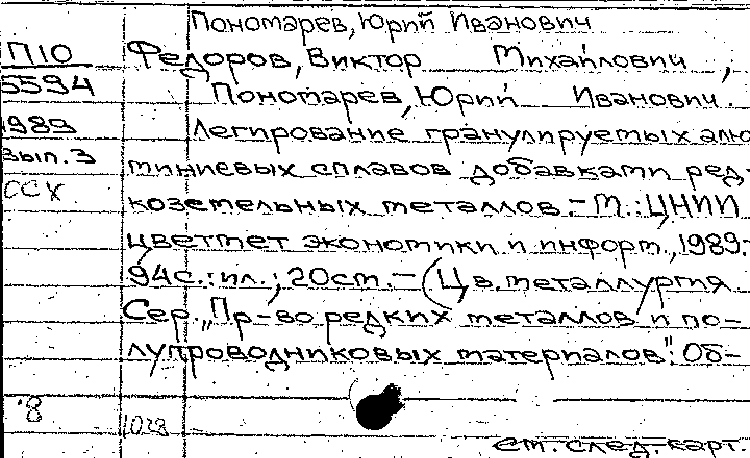 Пономарев, Юрий Иванович
П10
Федоров, Виктор Михайлович,
5594
Пономарев, Юрий Иванович
1989
Легирование гранулируемых алю
вып. 3
миниевых сплавов добавками ред-
ССХ
коземельных металлов.- М.: ЦНИИ
цветмет экономики и информ., 1989.-
94с.: ил.; 20см.- (Цв. металлургия.
Сер. "Пр-во редких металлов и по-
лупроводниковых материалов": Об-
8
1028
см. след. карт.